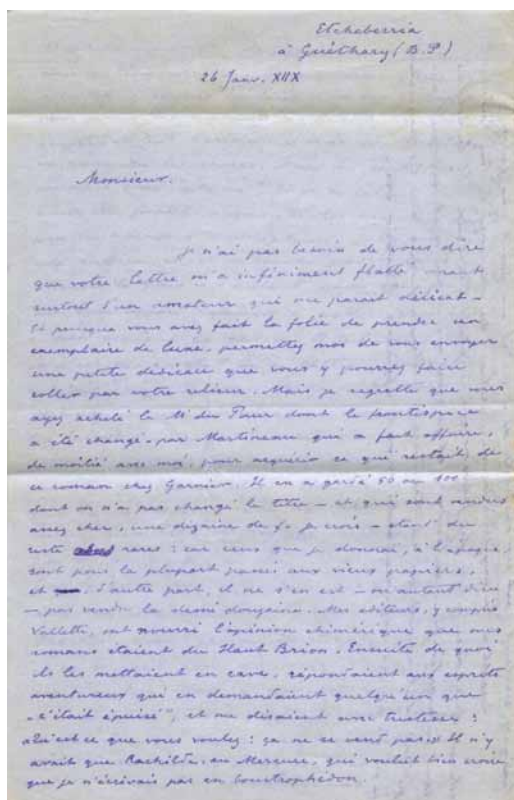 Etcheberria
à Guéthary (B.P.)
26 Janv. XIIX
Monsieur.
Je n'ai pas besoin de vous dire
que votre lettre m'a infiniment flatté venant
surtout d'un amateur qui me parait délicat –
Et puisque vous avez fait la folie de prendre un
exemplaire de luxe, permettez moi de vous envoyer
une petite dédicace que vous y pourrez faire
coller par votre relieur. Mais je regrette que vous
ayez acheté le M. du Paur dont le frontispice
a été changé, par Martineau qui a fait affaire,
de moitié avec moi, pour acquérir ce qui restait de
ce roman chez Garnier. Il en a gardé 50 ou 100
dont on n'a pas changé le titre – et qui sont vendus
assez cher, une dizaine de fr. je crois – étant du
reste rares : car ceux que je donnai, à l'époque,
sont pour la plupart passés aux vieux papiers,
et d'autre part, il ne s'en est – ou autant dire
– pas vendu la demi douzaine. Mes éditeurs, y compris
Vallette, ont nourri l'opinion chimérique que mes
romans étaient du Haut Brion. Ensuite de quoi
ils les mettaient en cave, répondaient aux esprits
aventureux qui en demandaient quelqu'un que
"c'était épuisé", et me disaient avec tristesse :
"Qu'est ce que vous voulez : ça ne se vend pas." Il n'y
avait que Rachilde, au Mercure, qui voulut bien croire
que je n'écrivais pas en boustrophédon.